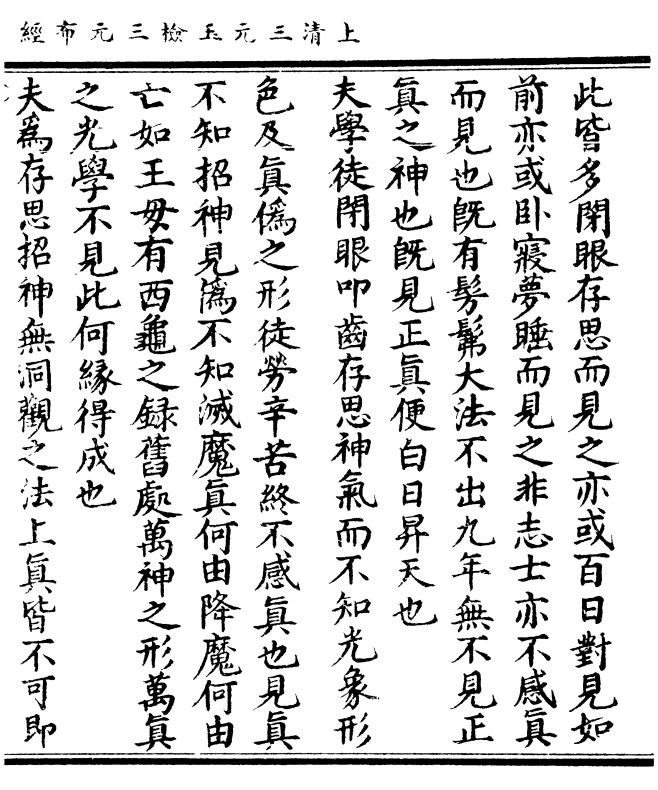 上清三元玉檢三元布經
此皆多閉眼存思而見之亦或百日對見如
前亦或卧寢夢睡而見之非志士亦不感真
而見也既有髣髴大法不出九年無不見正
真之神也既見正真便白日昇天也
夫學徒閉眼叩齒存思神氣而不知光象形
色及真僞之形徒勞辛苦終不感真也見真
不知招神見僞不知滅魔真何由降魔何由
亡如王毋有西龜之録舊處萬神之形萬真
之光學不見此何緣得成也
夫爲存思招神無洞觀之法上真皆不可即